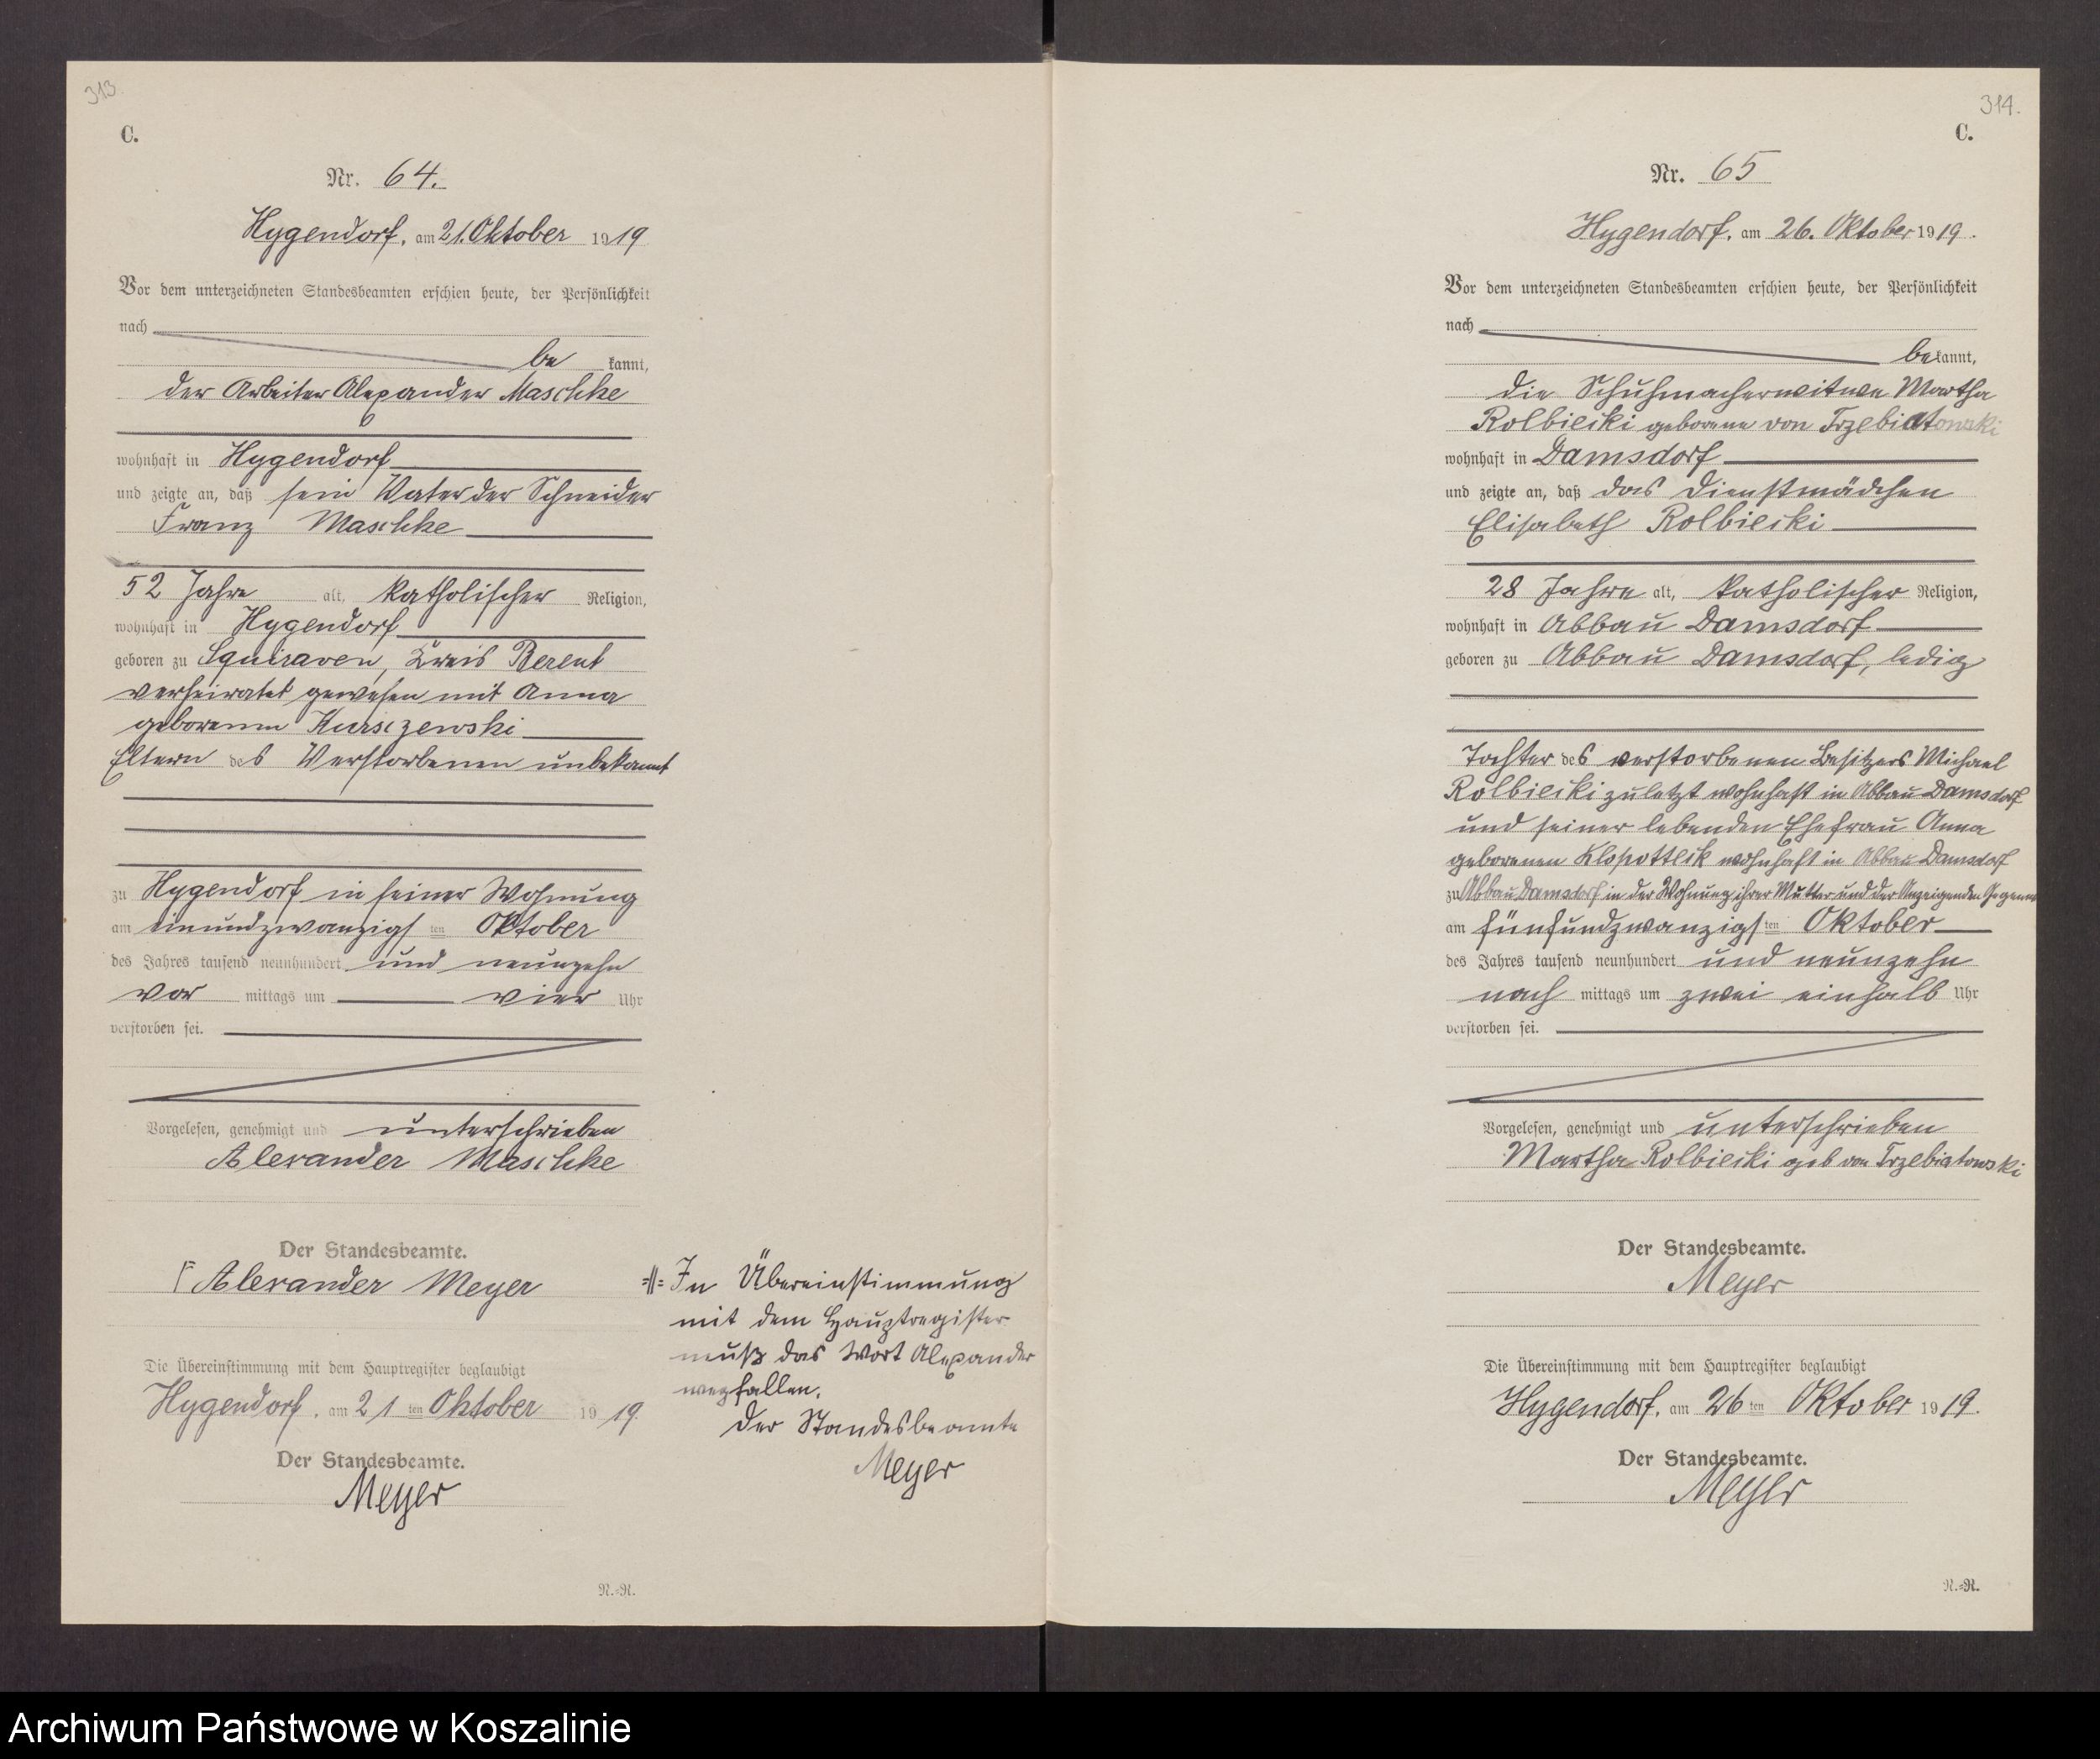 313.
C.
Nr. 64.
Hygendorf, am 21. Oktober 1919
Vor dem unterzeichneten Standesbeamten erschien heute, der Persönlichkeit
nach
be kannt,
der Arbeiter Alexander Maschke
wohnhaft in Hygendorf
und zeigte an, daß sein Vater der Schneider
Franz Maschke
52 Jahre alt, katholischer Religion,
wohnhaft in Hygendorf
geboren zu Squiraven, Kreis Berent
verheiratet gewesen mit Anna
geborenen Kursczewski
Eltern des Verstorbenen unbekannt
zu Hygendorf in seiner Wohnung
am einundzwanzigsten Oktober
des Jahres tausend neunhundert und neunzehn
vor mittags um vier Uhr
verstorben sei.
Vorgelesen, genehmigt und unterschrieben
Alexander Maschke
Der Standesbeamte.
Alexander Meyer
Die Übereinstimmung mit dem Hauptregister beglaubigt
Hygendorf, am 21ten Oktober 1919.
Der Standesbeamte.
Meyer
In Übereinstimmung
mit dem Hauptregister
muß das Wort Alexander
wegfallen.
Der Standesbeamte
Meyer
R.=R.
314.
C.
Nr. 65
Hygendorf, am 26. Oktober 1919.
Vor dem unterzeichneten Standesbeamten erschien heute, der Persönlichkeit
nach
bekannt,
die Schuhmacherwitwe Martha
Rolbiecki geborene von Trzebiatowski
wohnhaft in Damsdorf
und zeigte an, daß das Dienstmädchen
Elisabeth Rolbiecki
28 Jahre alt, katholischer Religion,
wohnhaft in Abbau Damsdorf
geboren zu Abbau Damsdorf, ledig
Tochter des verstorbenen Besitzers Michael
Rolbiecki zuletzt wohnhaft in Abbau Damsdorf
und seiner lebenden Ehefrau Anna
geborenen Klopotteck wohnhaft in Abbau Damsdorf
zu Abbau Damsdorf in der Wohnung ihrer Mutter und der Anzeigenden Gegenw
am fünfundzwanzigsten Oktober
des Jahres tausend neunhundert und neunzehn
nach mittags um zwei einhalb Uhr
verstorben sei.
Vorgelesen, genehmigt und unterschrieben
Martha Rolbiecki geb von Trzebiatowski
Der Standesbeamte.
Meyer
Die Übereinstimmung mit dem Hauptregister beglaubigt
Hygendorf, am 26ten Oktober 1919.
Der Standesbeamte.
Meyer
R.=R.
Archiwum Państwowe w Koszalinie